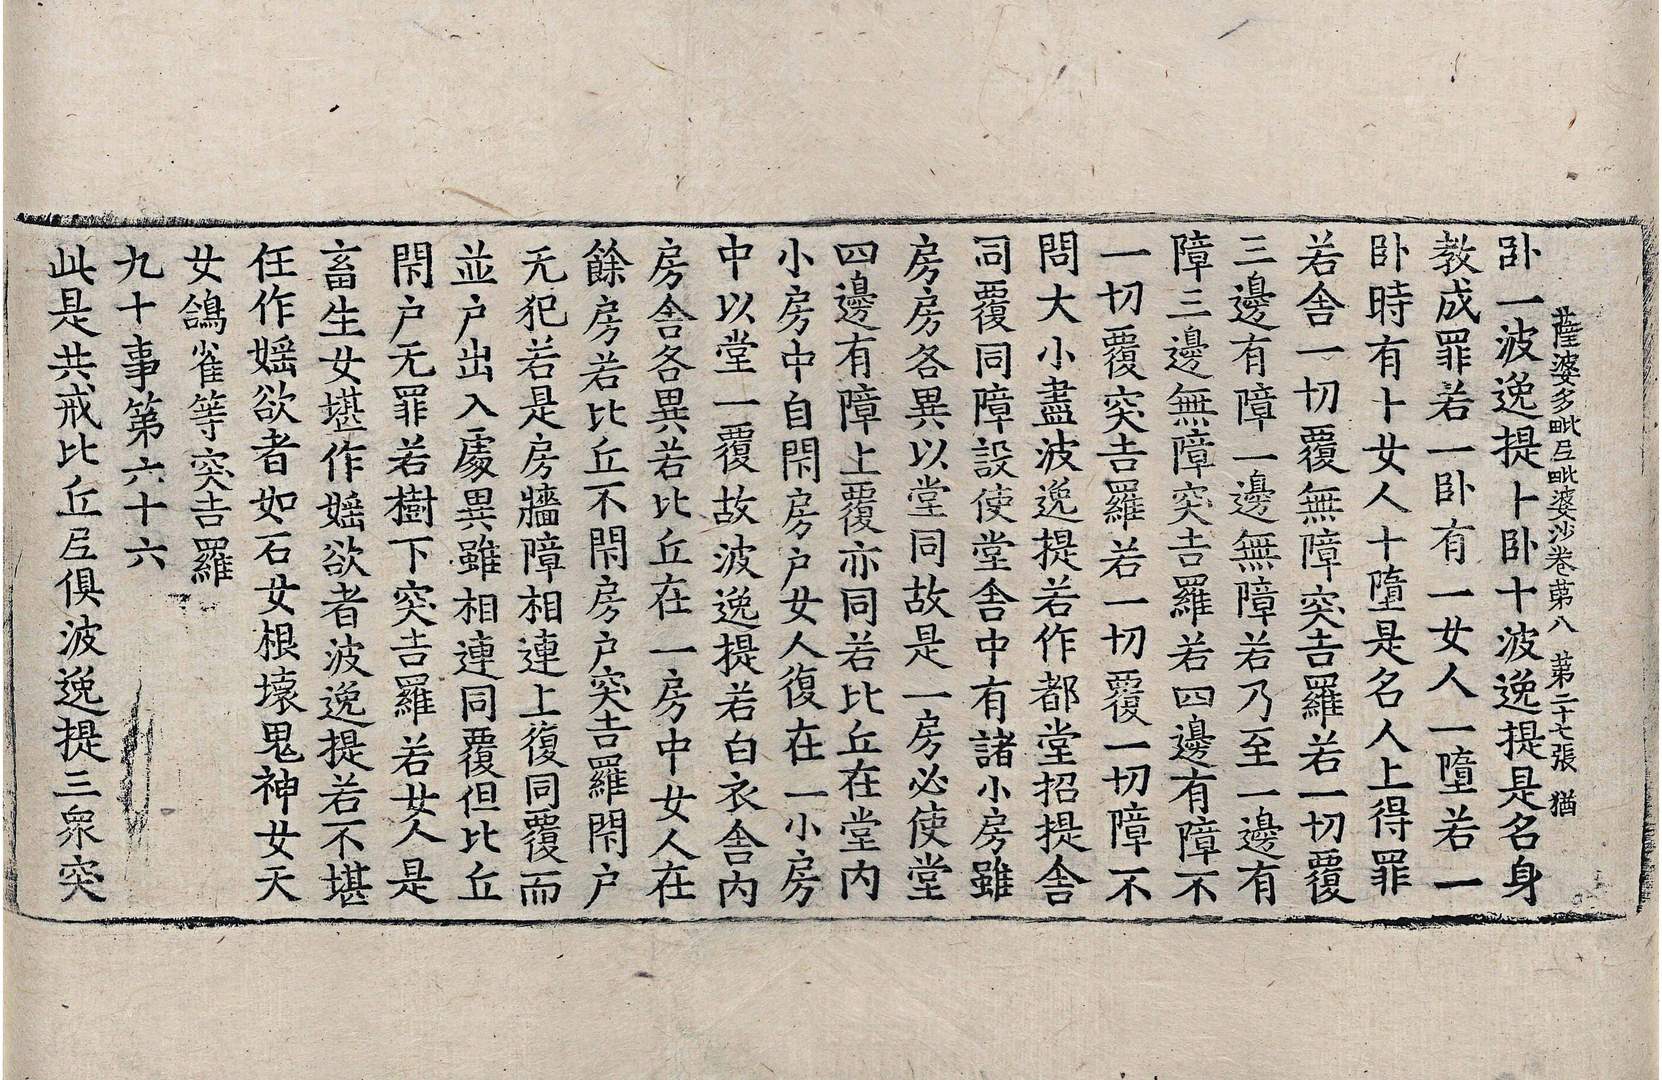 薩婆多毗𡰱毗婆沙卷苐八　第二十七張　猶
卧一波逸提卜卧十波逸提是名身
教成罪若一卧有一女人一墮若一
卧時有卜女人十墮是名人上得罪
若舍一切覆無障突吉羅若一切覆
三邊有障一邊無障若乃至一邊有
障三邊無障突吉羅若四邊有障不
一切覆突吉羅若一切覆一切障不
問大小盡波逸提若作都堂招提舍
同覆同障設使堂舍中有諸小房雖
房房各異以堂同故是一房必使堂
四邊有障上覆亦同若比丘在堂内
小房中自閇房户女人復在一小房
中以堂一覆故波逸提若白衣舍内
房舍各異若比丘在一房中女人在
餘房若比丘不閇房户突吉羅閇户
无犯若是房牆障相連上復同覆而
並户出入處異雖相連同覆但比丘
閇户无罪若樹下突吉羅若女人是
畜生女堪作婬欲者波逸提若不堪
任作婬欲者如石女根壞鬼神女天
女鴿雀等突吉羅
九十事第六十六
此是共戒比丘𡰱俱波逸提三衆突